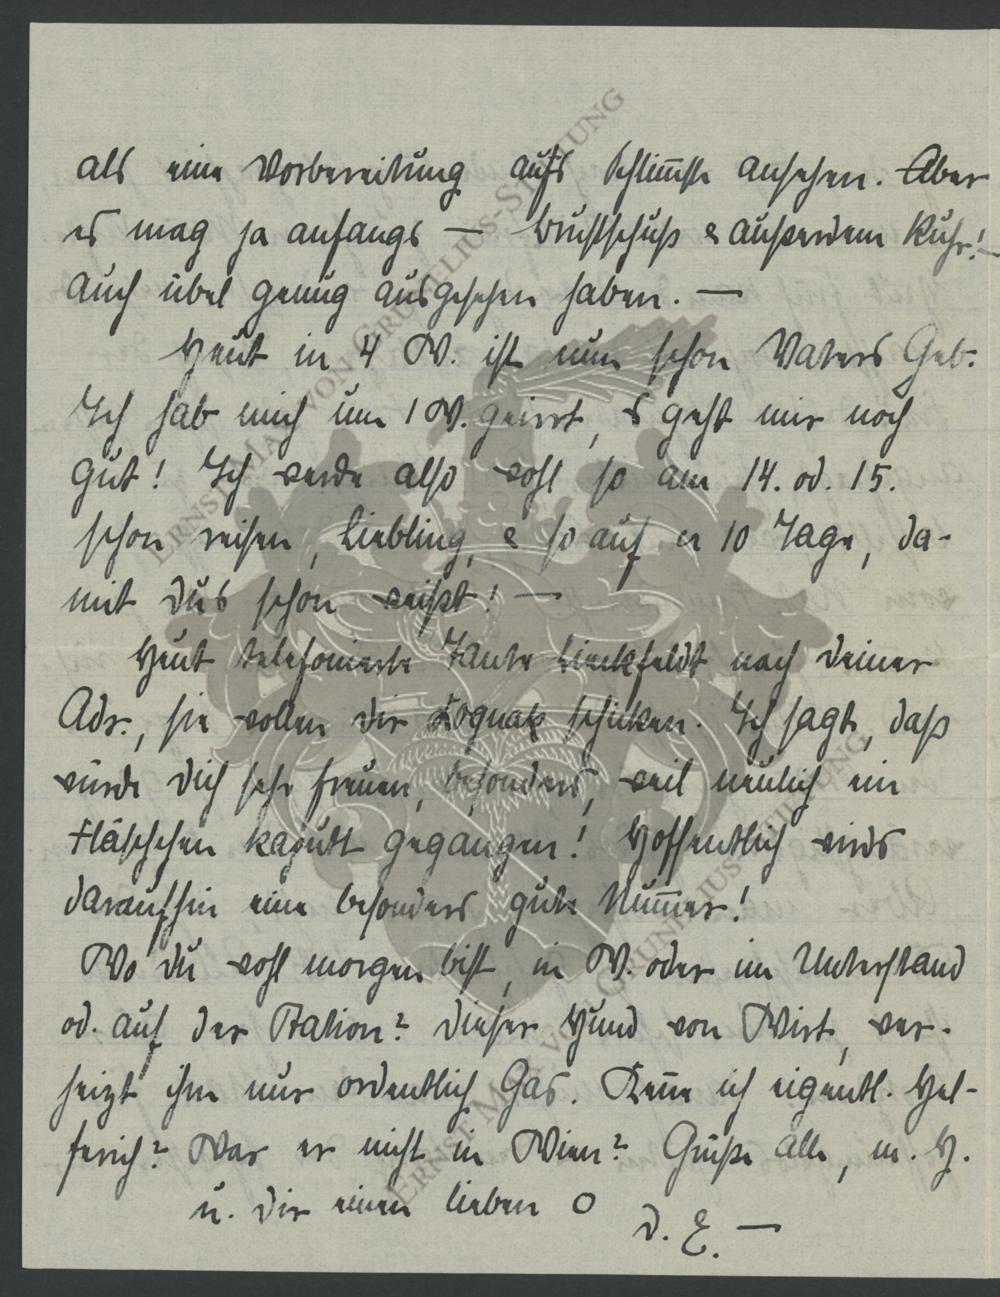 als eine Vorbereitung aufs Schlimmste ansehen. Aber
es mag ja anfangs — Brustschuß & außerdem Ruhr! —
auch übel genug ausgesehen haben. —
Heut in 4 W. ist nun schon Vaters Geb.
Ich hab mich um 1 W. geirrt, es geht mir noch
gut! Ich werde also wohl so am 14. od. 15.
schon reisen, Liebling, & so auf 10 Tage, da-
mit Dus schon weißt! —
Heut telefonierte Tante Lieckfeldt nach Deiner
Adr., sie wollen Dir Kognak schicken. Ich sagte, daß
würde Dich sehr freuen, besonders, weil neulich ein
Fläschchen kaputt gegangen! Hoffentlich wirds
daraufhin eine besonders gute Nummer!
Wo Du wohl morgen bist, in W. oder im Unterstand
od. auf der Station? Dieser Hund von Wirt, ver-
heizt ihm nur ordentlich Gas. Kenne ich eigentl. Hel-
ferich? War er nicht in Wien? Grüße alle, m. H.
u. Dir einen lieben O
D. E. —
ERNST MAX VON GRUNELIUS-STIFTUNG
ERNST MAX VON GRUNELIUS-STIFTUNG